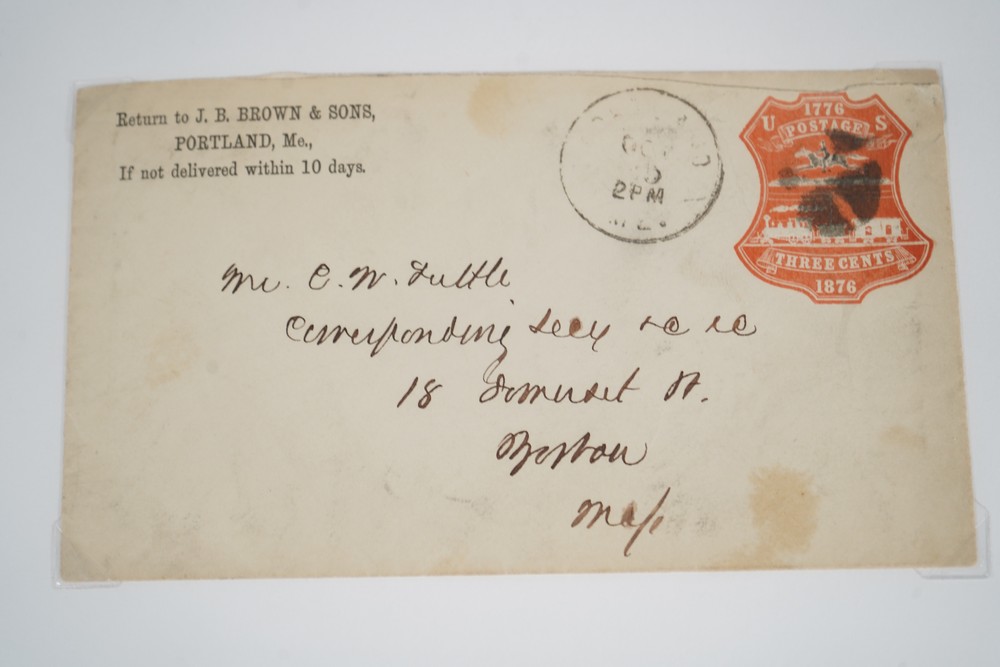 Return to J. B. BROWN & SONS,
PORTLAND, Me.,
If not delivered within 10 days.
2PM
1776
U S
POSTAGE
THREE CENTS
1876
Mr. C. W. Tuttle
Corresponding Secy &c &c
18 Somerset St.
Boston
Mass